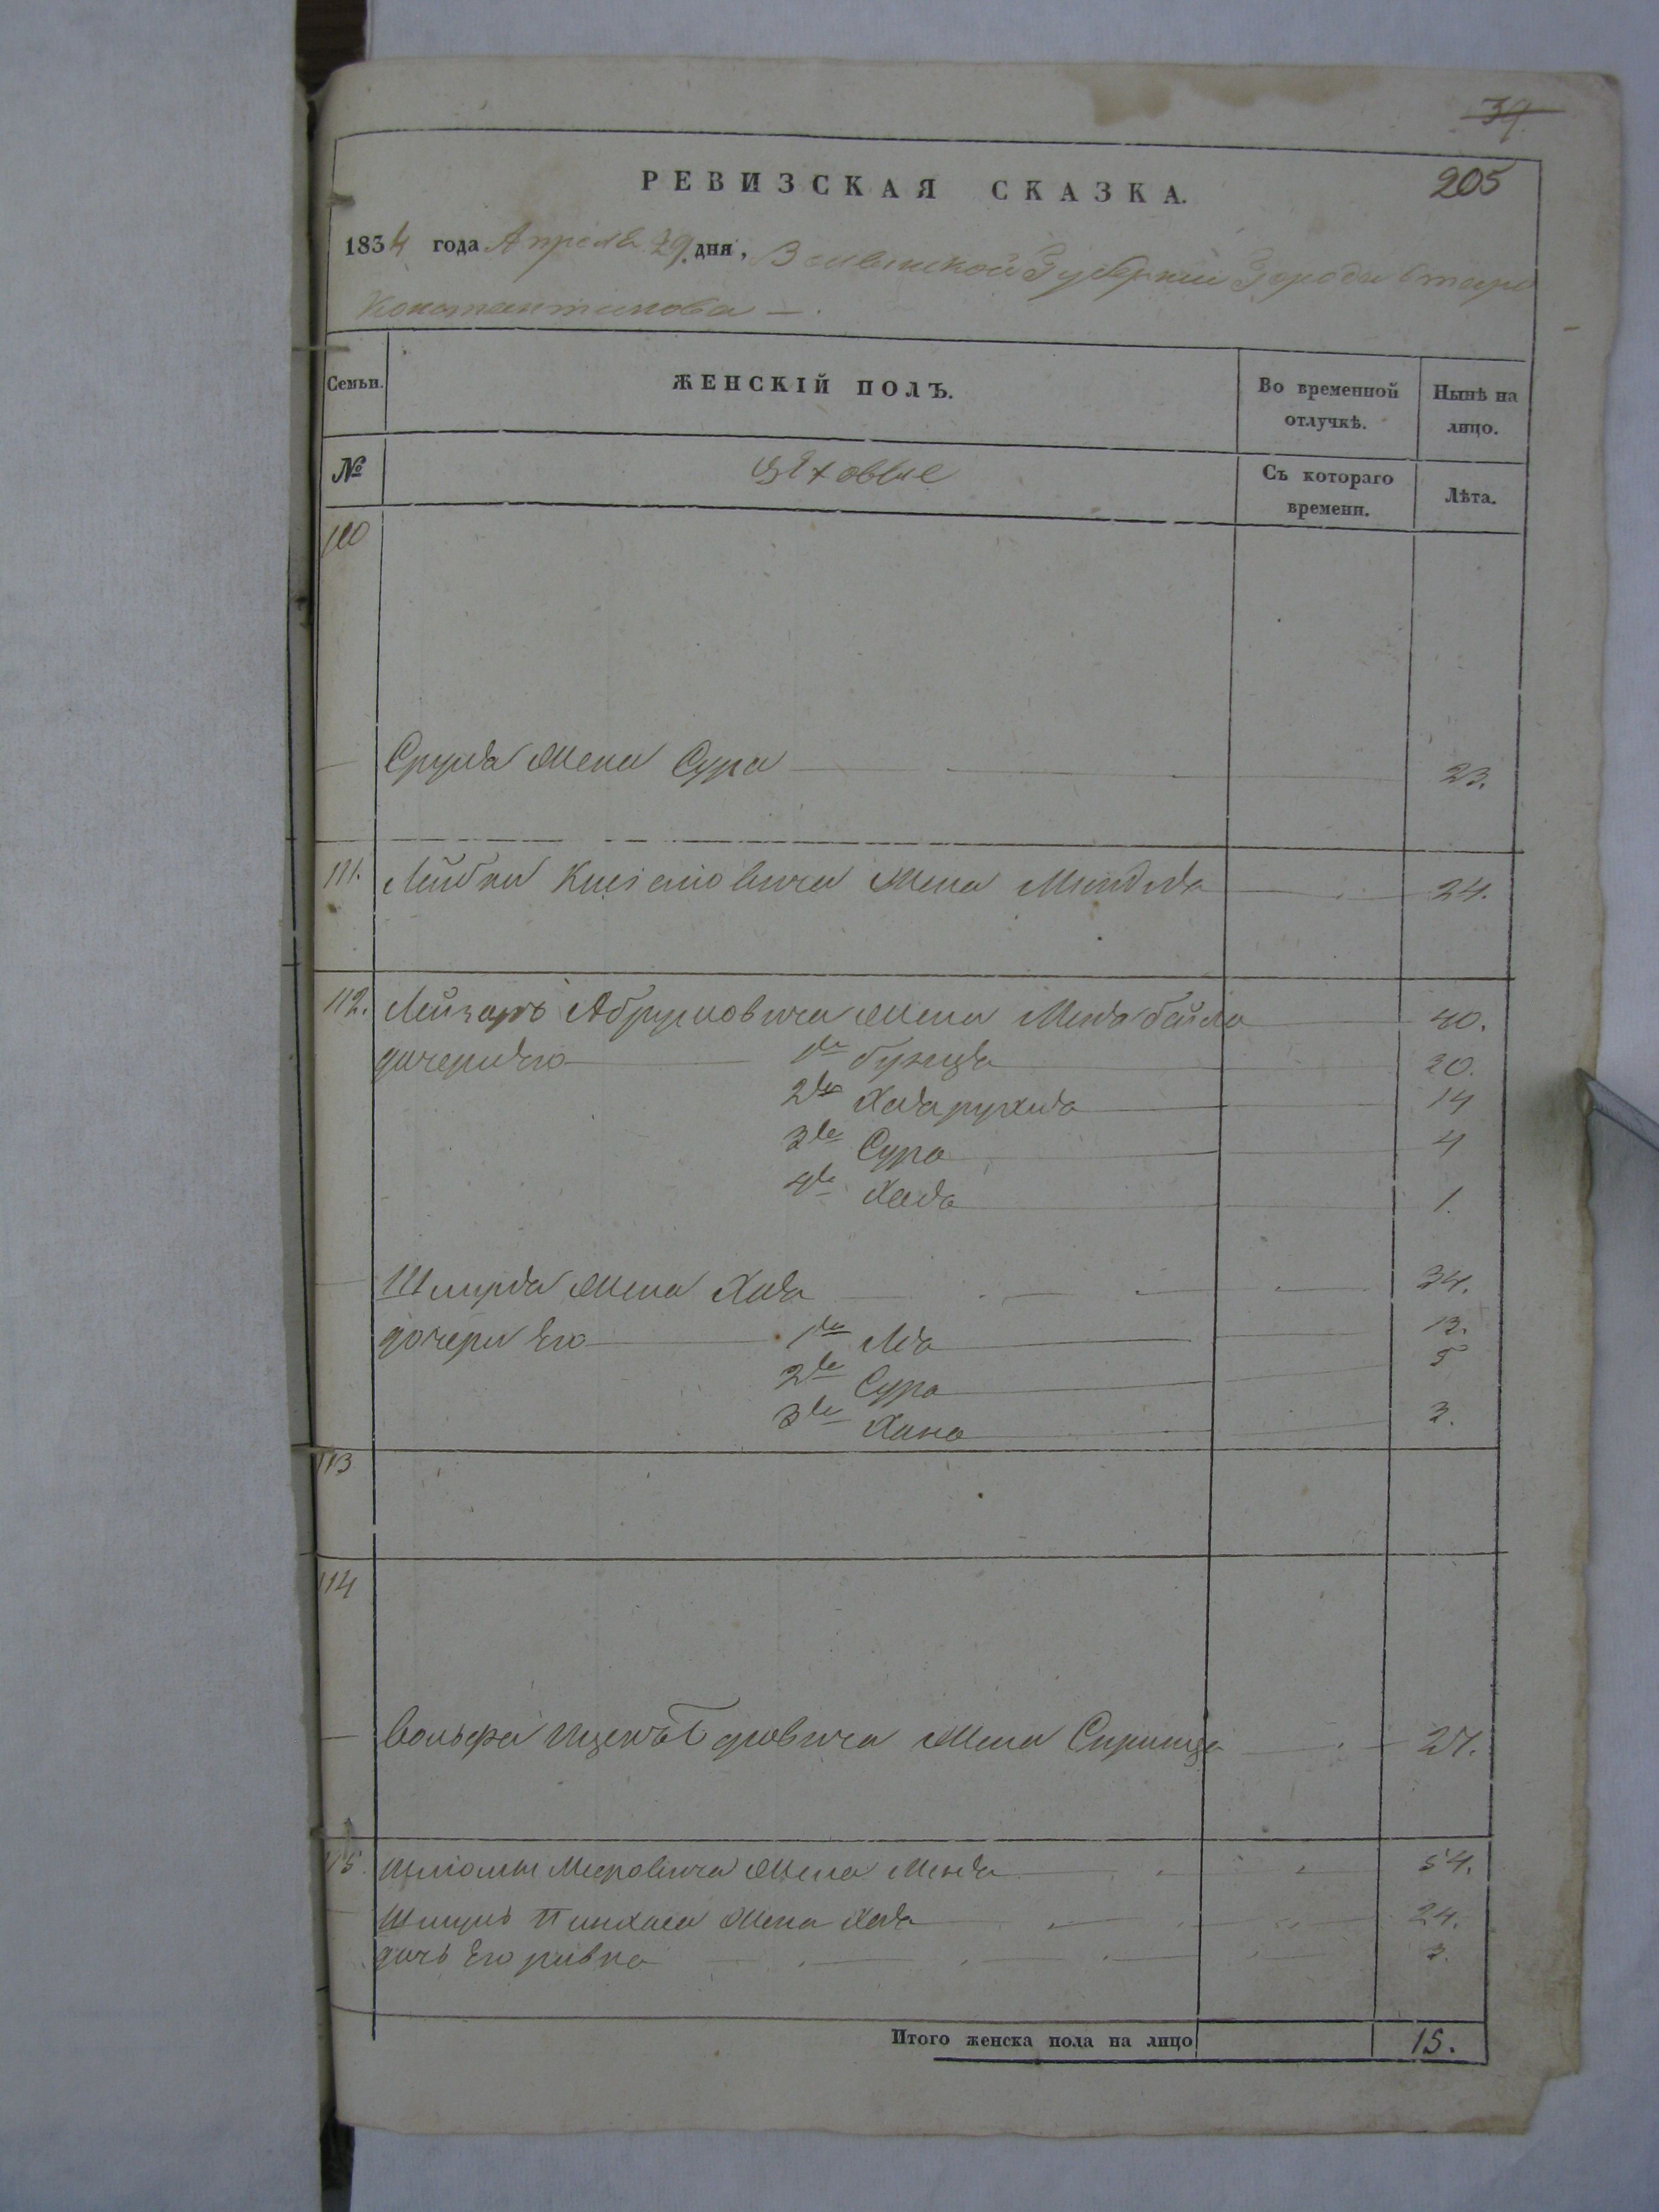 39
205
РЕВИЗСКАЯ СКАЗКА.
1834 года Апреля 29 дня, Волынской Губернии Города Старо
Константинова —.
Семьи. ЖЕНСКІЙ ПОЛЪ. Во временной отлучкѣ. Нынѣ на лицо.
№ Цѣховые Съ котораго времени. Лѣта.
110
Сруля Жена Сура 23.
111. Лейбы Жена 24.
112. Лейзаръ Абрумовича Жена бейла 40.
дочери Его 1я 20.
2я Хая рухля 14
3я Сура 4
4я Хая 1.
Шмуля Жена Хая 34.
дочери Его 1я Лея 12.
2я Сура 5
3я Хана 3.
113
114
Вольфа Жена Сприица 27.
115. Шломы Меровича Жена 54.
Шмуль Пинхаса Жена Хая 24.
дочь Его ривка 3.
Итого женска пола на лицо 15.